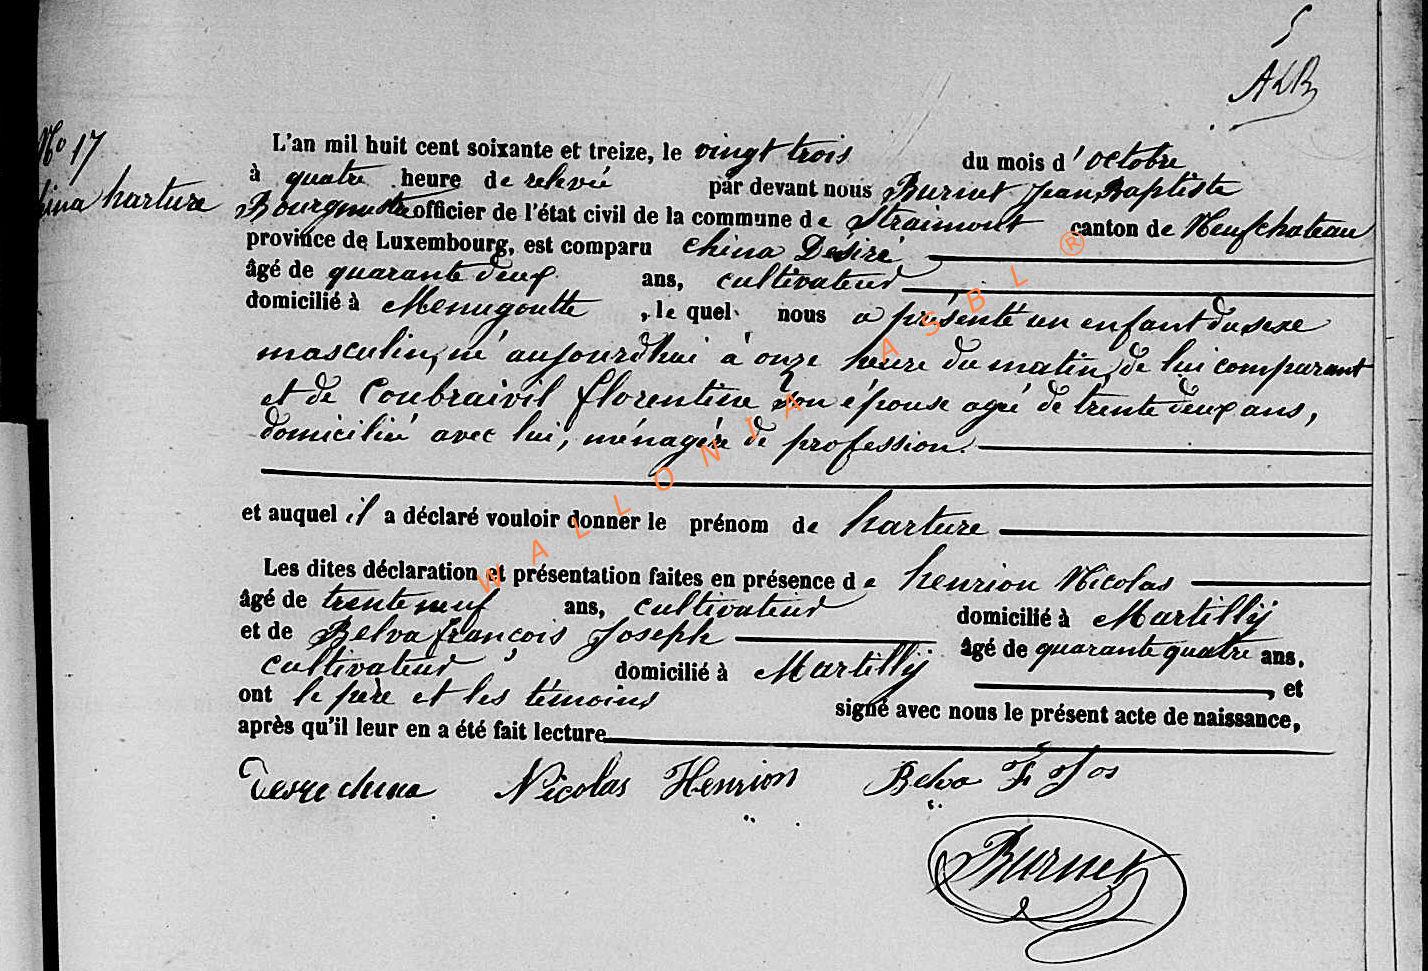 5
ALB
No 17
hina harture
L'an mil huit cent soixante et treize, le vingt trois du mois d'octobre
à quatre heure de relevée par devant nous Burnet Jean Baptiste
Bourgmestre officier de l'état civil de la commune de Straimont canton de Neufchateau
province de Luxembourg, est comparu China Désiré
âgé de quarante deux ans, cultivateur
domicilié à Menugoutte, le quel nous a présenté un enfant du sexe
masculin, né aujourdhui à onze heure du matin, de lui comparant
et de Coubraivil florentine son épouse agée de trente deux ans,
domiciliée avec lui, ménagère de profession.
et auquel il a déclaré vouloir donner le prénom de harture
Les dites déclaration et présentation faites en présence de henrion Nicolas
âgé de trente neuf ans, cultivateur domicilié à Martilly
et de Belva françois Joseph âgé de quarante quatre ans,
cultivateur, domicilié à Martilly, et
ont le père et les témoins signé avec nous le présent acte de naissance,
après qu'il leur en a été fait lecture
china Nicolas Henrion Belva F Jos
Burnet
WALLONIA ASBL ®